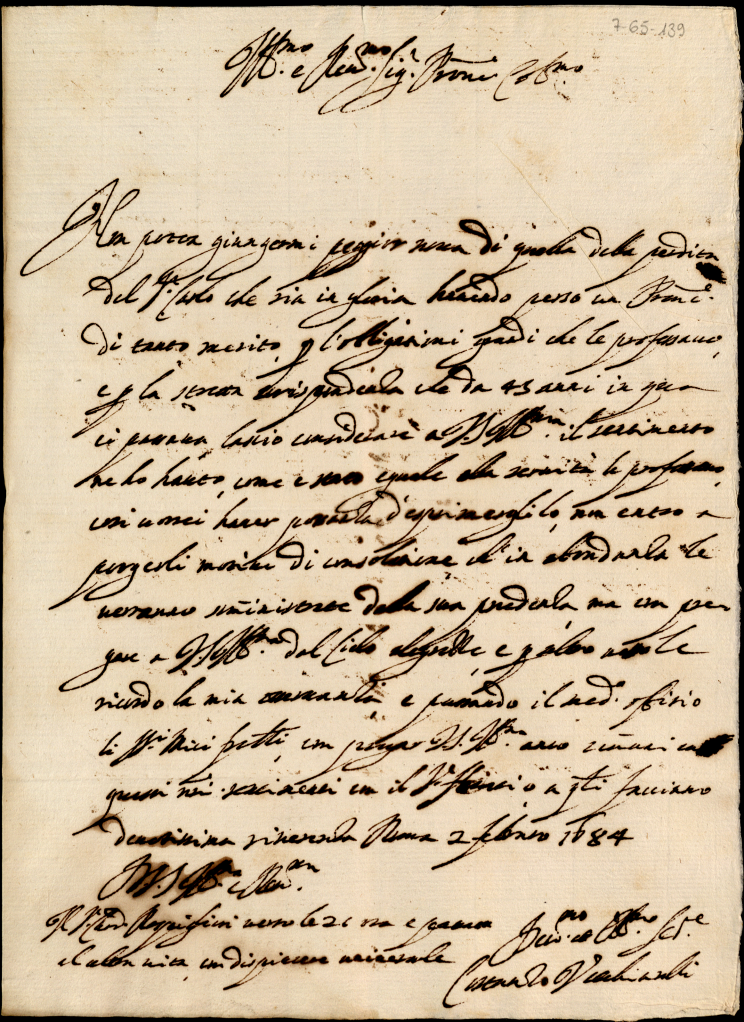 7-65-139
Ill.mo e Rev.mo Sig.r Pron.e Col.mo
Non potea giungermi peggior nova di quella della perdita
del S.r Carlo che sia in gloria havendo perso un Pron.e
di tanto merito, p l'obligationi grandi che le professavo,
e p la stretta corrispondenza che da 43 anni in qua
ci passava lascio considerare a V.S. Ill.ma il sentimento
ne ho hauto, come e stato eguale alla servitù le professavo,
cosi vorrei haver possanza d'esprimerglilo, non entro a
porgerli motivi di consolatione ch'in abondanza le
verranno suministrate della sua prudenza ma con pre-
gare a V.S. Ill.ma dal Cielo e p altro
ricordo la mia e passando il med.o offitio
li SS.ri Miei fr.elli, con pregar V.S. Ill.ma anco
questi miei sentimenti con il S.r a q.li facciamo
devotissima riverenza Roma 2 febraro 1684
D V.S. Ill.ma e Rev.ma
Il S.r Card. Rospigliosi verso le 21 ora e passato
al altra vita, con dispiacere universale
Dev.mo et Obl.mo Ser.e